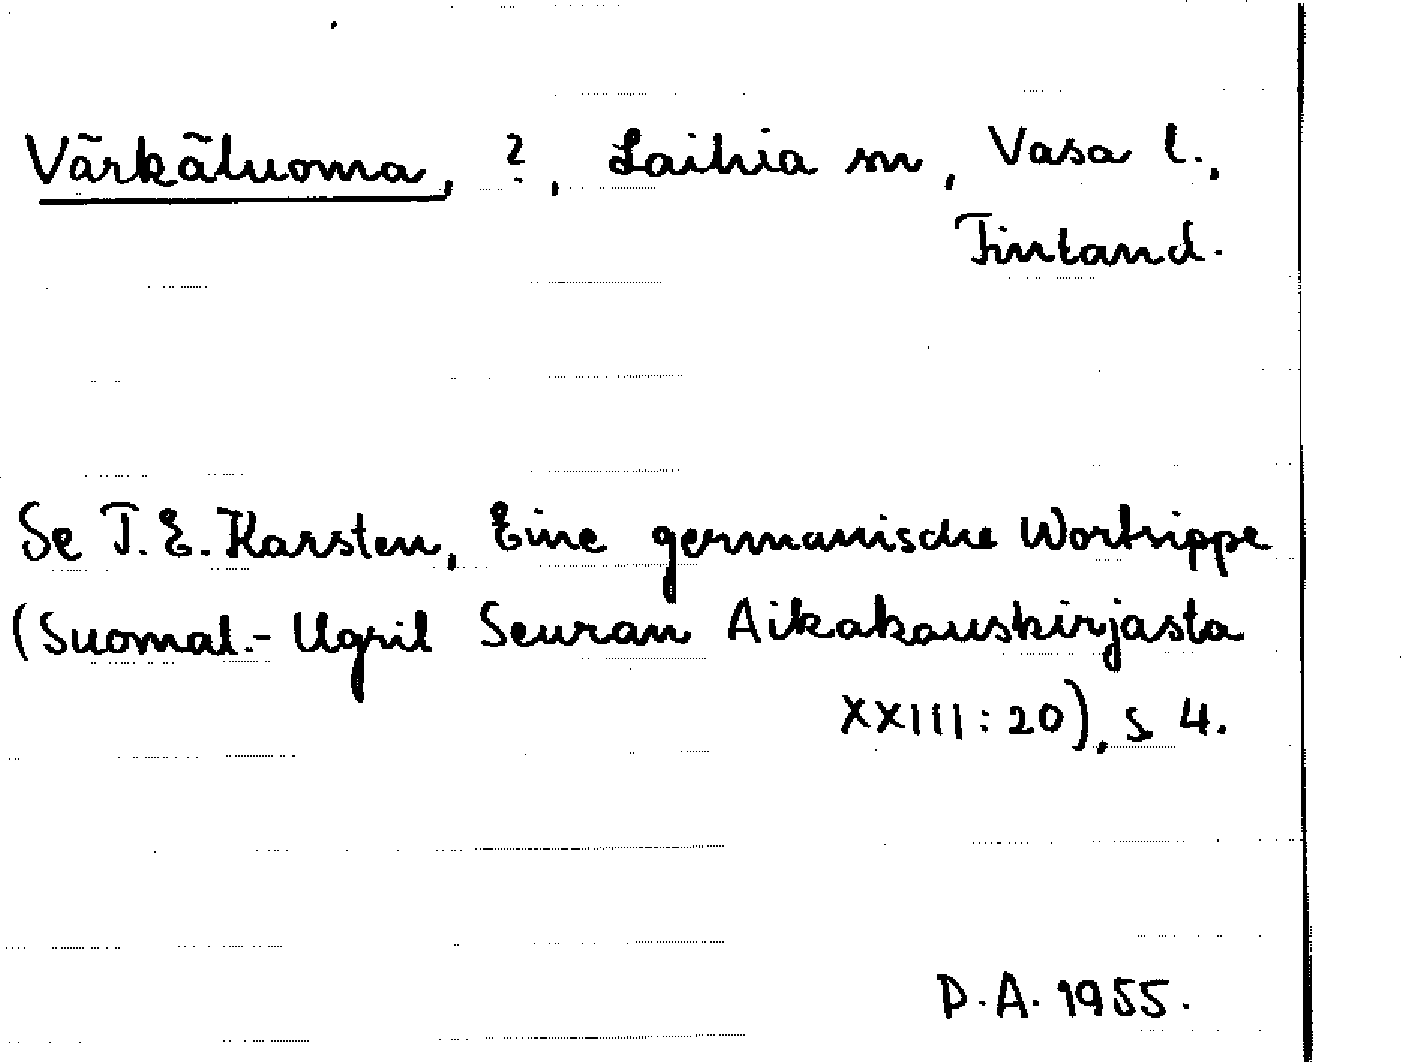 Värkäluoma, ?, Laihia sn, Vasa l.,
Finland.
Se T. E. Karsten, Eine germanische Wortsippe
(Suomal.- Ugril Seuran Aikakauskirjasta
XXIII: 20), s 4.
D. A. 1955.